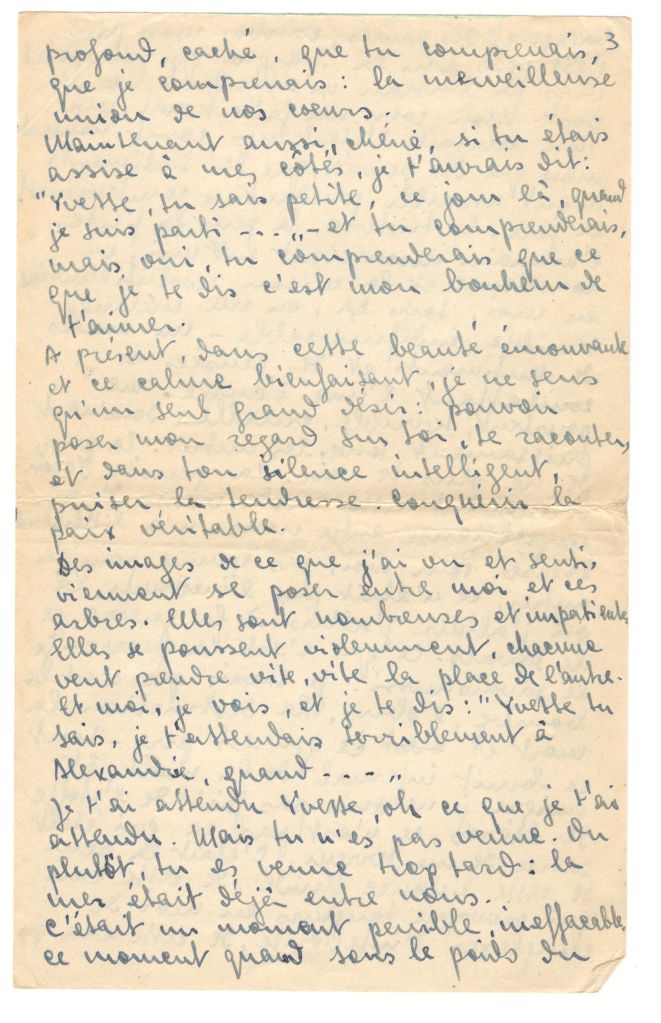 3
profond, caché, que tu comprenais,
que je comprenais: la merveilleuse
union de nos coeurs.
Maintenant aussi, chérie, si tu étais
assise à mes côtés, je t'aurais dit:
"Yvette, tu sais petite, ce jour là, quand
je suis parti ---- „ - et tu comprendrais,
mais oui, tu comprendrais que ce
que je te dis c'est mon bonheur de
t'aimer.
A présent, dans cette beauté émouvante
et ce calme bienfaisant, je ne sens
qu'un seul grand désir: pouvoir
poser mon regard sur toi, te raconter,
et dans ton silence intelligent,
puiser la tendresse. Conquérir la
paix véritable.
Des images de ce que j'ai vu et senti,
viennent se poser entre moi et ces
arbres. Elles sont nombreuses et impatientes
Elles se poussent violemment, chacune
veut prendre vite, vite la place de l'autre.
Et moi, je vois, et je te dis: "Yvette tu
sais, je t'attendais terriblement à
Alexandrie, quand ---- „
Je t'ai attendu Yvette, oh ce que je t'ai
attendu. Mais tu n'es pas venue. Ou
plutôt, tu es venue trop tard: la
mer était déjà entre nous.
C'était un moment penible, ineffaçable,
ce moment quand sous le poids du